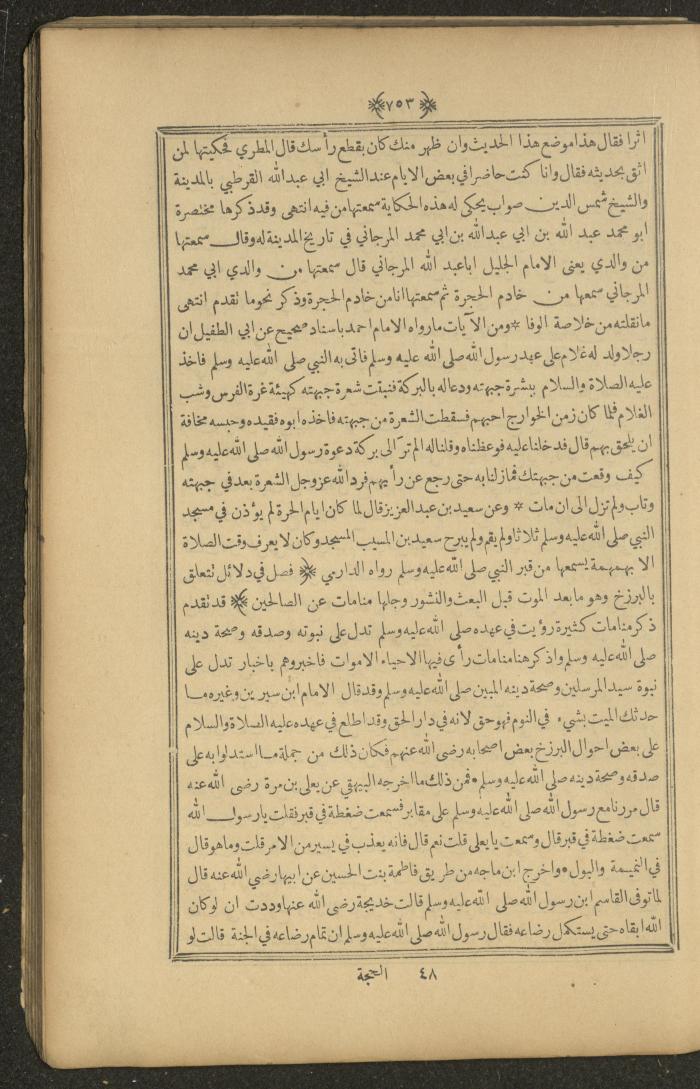 ﴿٧٥٣﴾
اثرا فقال هذا موضع هذا الحديث وان ظهر منك كان بقطع رأسك قال المطري فحكيتها لمن
اثق بحديثه فقال وانا كنت حاضرا في بعض الايام عند الشيخ ابي عبدالله القرطبي بالمدينة
والشيخ شمس الدين صواب يحكى له هذه الحكاية سمعتها من فيه انتهى وقد ذكرها مختصرة
ابو محمد عبد الله بن ابي عبدالله بن ابي محمد المرجاني في تاريخ المدينة له وقال سمعتها
من والدي يعنى الامام الجليل ابا عبد الله المرجاني قال سمعتها من والدي ابي محمد
المرجاني سمعها من خادم الحجرة ثم سمعتها انا من خادم الحجرة وذكر نحو ما تقدم انتهى
ما نقلته من خلاصة الوفا * ومن الآيات ما رواه الامام احمد باسناد صحيح عن ابي الطفيل ان
رجلا ولد له غلام على عهد رسول الله صلى الله عليه وسلم فاتى به النبي صلى الله عليه وسلم فاخذ
عليه الصلاة والسلام ببشرة جبهته ودعا له بالبركة فنبتت شعرة جبهته كهيئة غرة الفرس وشب
الغلام فلما كان زمن الخوارج احبهم فسقطت الشعرة من جبهته فاخذه ابوه فقيده وحبسه مخافة
ان يلحق بهم قال فدخلنا عليه فوعظناه وقلنا له الم تر الى بركة دعوة رسول الله صلى الله عليه وسلم
كيف وقعت من جبهتك فما زلنا به حتى رجع عن رأيهم فرد الله عزوجل الشعرة بعد في جبهته
وتاب ولم تزل الى ان مات * وعن سعيد بن عبد العزيز قال لما كان ايام الحرة لم يؤذن في مسجد
النبي صلى الله عليه وسلم ثلاثا ولم يقم ولم يبرح سعيد بن المسيب المسجد وكان لا يعرف وقت الصلاة
الا بهمهمة يسمعها من قبر النبي صلى الله عليه وسلم رواه الدارمي ﴿ فصل في دلائل تتعلق
بالبرزخ وهو ما بعد الموت قبل البعث والنشور وجلها منامات عن الصالحين ﴾ قد تقدم
ذكر منامات كثيرة رؤيت في عهده صلى الله عليه وسلم تدل على نبوته وصدقه وصحة دينه
صلى الله عليه وسلم واذكر هنا منامات رأى فيها الاحياء الاموات فاخبروهم باخبار تدل على
نبوة سيد المرسلين وصحة دينه المبين صلى الله عليه وسلم وقد قال الامام ابن سيرين وغيره ما
حدثك الميت بشيء في النوم فهو حق لانه في دار الحق وقد اطلع في عهده عليه الصلاة والسلام
على بعض احوال البرزخ بعض اصحابه رضى الله عنهم فكان ذلك من جملة ما استدلوا به على
صدقه وصحة دينه صلى الله عليه وسلم * فمن ذلك ما اخرجه البيهقي عن يعلى بن مرة رضى الله عنه
قال مررنا مع رسول الله صلى الله عليه وسلم على مقابر فسمعت ضغطة في قبر فقلت يا رسول الله
سمعت ضغطة في قبر قال وسمعت يا يعلى قلت نعم قال فانه يعذب في يسير من الامر قلت وما هو قال
في النميمة والبول * واخرج ابن ماجه من طريق فاطمة بنت الحسين عن ابيها رضي الله عنه قال
لما توفى القاسم ابن رسول الله صلى الله عليه وسلم قالت خديجة رضى الله عنها وددت ان لو كان
الله ابقاه حتى يستكمل رضاعه فقال رسول الله صلى الله عليه وسلم ان تمام رضاعه في الجنة قالت لو
٤٨ الحجة